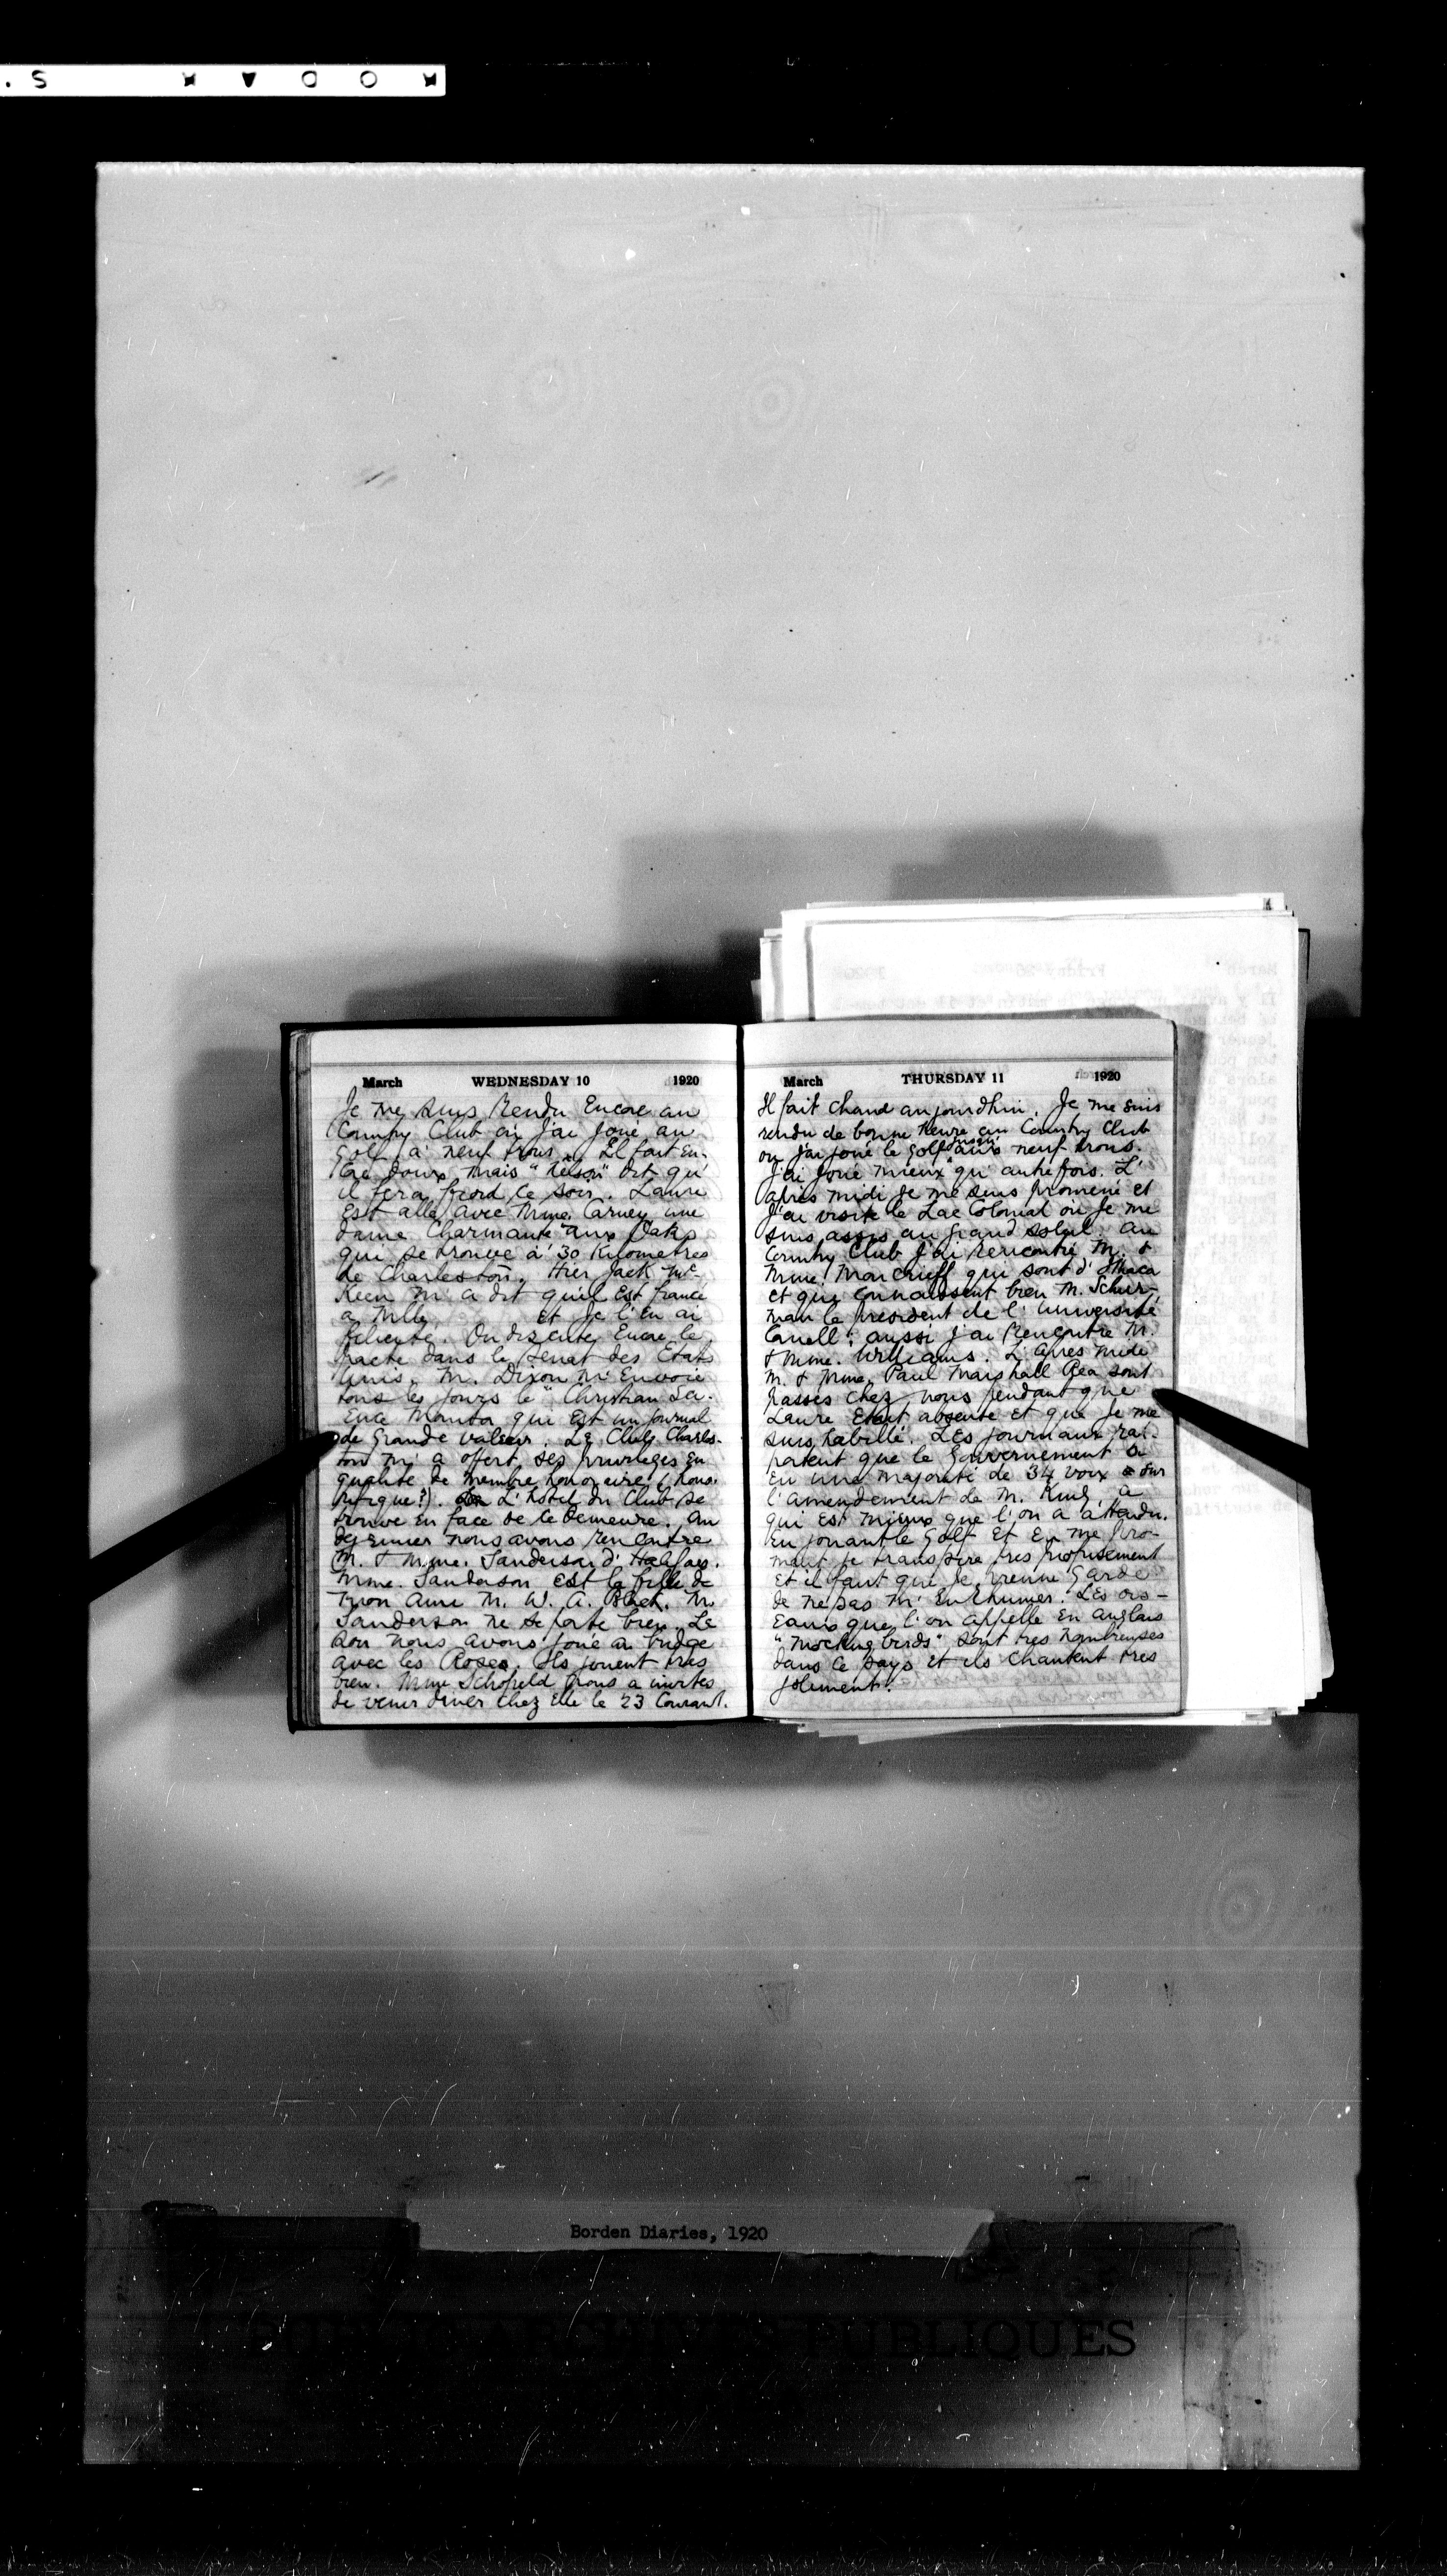 March WEDNESDAY 10 1920
Je me suis rendu encore au
Country Club ou j'ai joué au
golf à neuf trous. Il fait en-
core doux mais dit qu'
il fera froid ce soir. Laure
est allé avec Mme. Carney une
dame charmante aux Oaks
qui se trouve à 30 kilometres
de Charleston. Hier Jack Mc-
Keen m'a dit qu'il est fiancé
a Mlle. et je l'en ai
felicité. On discute encore le
pacte dans le Senat des Etats
Unis. M. Dixon m'envoie
tous les jours le "Christian Sci-
ence Monitor qui est un journal
de grande valeur. Le Club Charles-
ton m'a offert ses privileges en
qualité de membre honoraire (hono-
rifique?). L'hotel du Club se
trouve en face de ce demeure. Au
dejeuner nous avons rencontre
M. & Mme. Sanderson d'Halifax.
Mme. Sanderson est la fille de
mon ami M. W. A. Black. M.
Sanderson ne se porte bien. Le
soir nous avons joué au bridge
avec les Roses. Ils jouent tres
bien. Mme Schofield nous a invités
de venir diner chez elle le 23 Courant.
March THURSDAY 11 1920
Il fait chaud aujourdhui. Je me suis
rendu de bonne heure au Country Club
ou j'ai joué le golf aux neuf trous.
J'ai joué mieux qu'autrefois. L'
apres midi je me suis promené et
j'ai visité le Lac Colonial ou je me
suis assis au grand soleil. Au
Country Club j'ai rencontré M. &
Mme. Moncrieff qui sont d'Ithaca
et qui connaissent bien M. Schur-
man le president de l'Université
Cornell; aussi j'ai rencontre M.
& Mme. Williams. L'apres midi
M. & Mme. Paul Marshall Rea sont
passes chez nous pendant que
Laure etait absente et que je me
suis habillé. Les journaux rap-
portent que le Gouvernement a
eu une majorité de 34 voix sur
l'amendement de M. King, a
qui est mieux que l'on a attendu.
En jouant le golf et en me pro-
je transpire tres profusement
et il faut que je prenne garde
de ne pas m'enrhumer. Les ois-
eaux que l'on appelle en anglais
"mocking birds" sont tres nombreuses
dans ce pays et ils chantent tres
joliment.
Borden Diaries, 1920
PUBLIC ARCHIVES PUBLIQUES